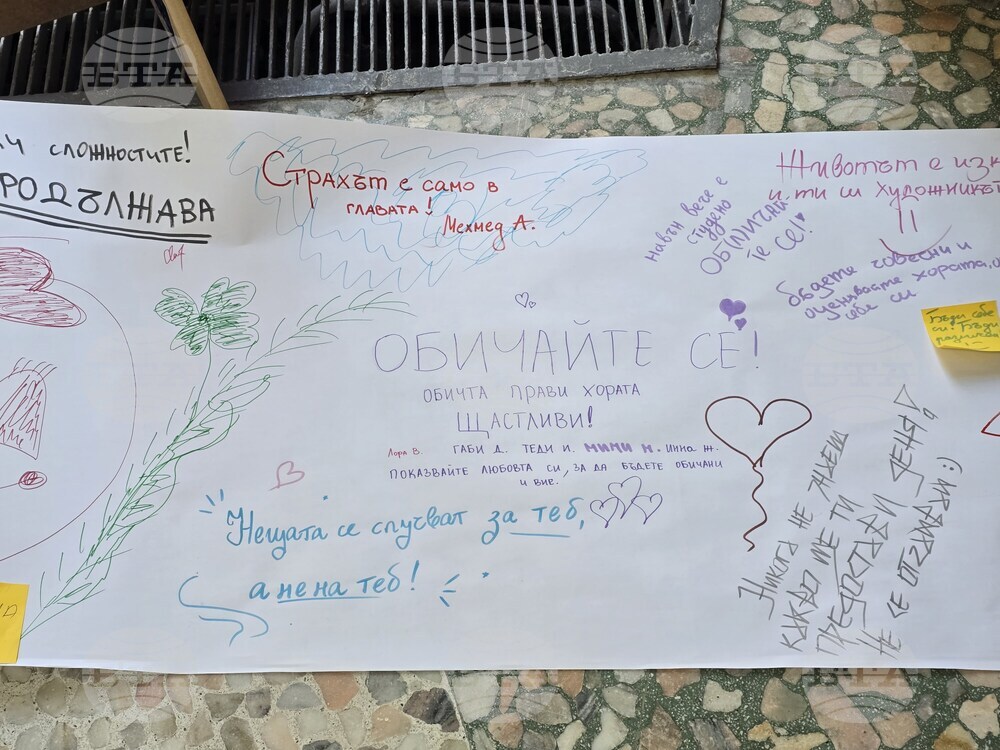 СЛОЖНОСТИТЕ!
РОДЪЛЖАВА
Страхът е само в
главата!
Мехмед А.
навън вече е
студено
Об(н)ичай
те се!
Животът е изк
и ти си художникът
бъдете човесни и
оценявайте хората, а
себе си
Бъди себе
си! Бъди
различен
ОБИЧАЙТЕ СЕ!
ОБИЧТА ПРАВИ ХОРАТА
ЩАСТЛИВИ!
Лори В. ГАБИ Д. ТЕДИ И. МИМИ М. ИННА Ж.
ПОКАЗВАЙТЕ ЛЮБОВТА СИ, ЗА ДА БЪДЕТЕ ОБИЧАНИ
И ВИЕ.
Нещата се случват за теб,
а не на теб!
НИКОГА НЕ ЗНАЕШ
КАКВО ЩЕ ТИ
ПРЕДОСТАВИ
ДЕНЯ, И
НЕ СЕ ОТКАЗВАЙ :)
БТА
БТА
БТА